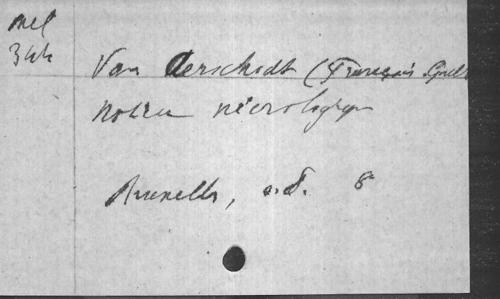 Mel
344
Van Aerschodt (François Guill
Notice nécrologique
Bruxelles, s.d. 8°